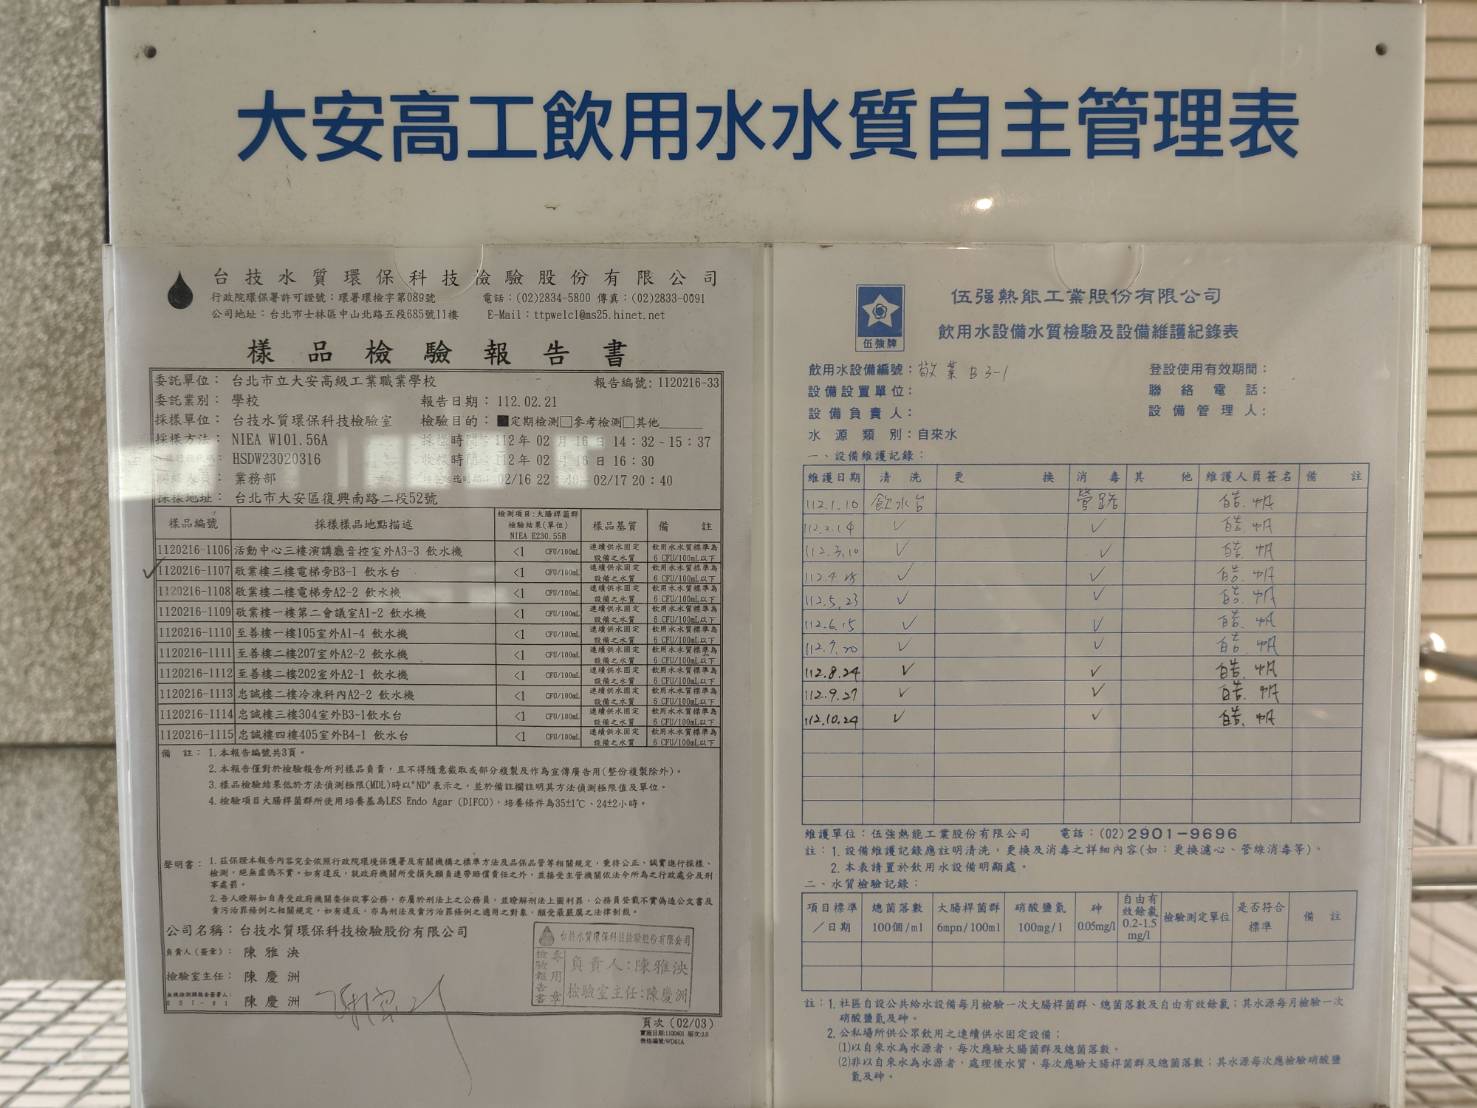 大安高工飲用水水質自主管理表
台技水質環保科技檢驗股份有限公司
行政院環保署許可證號：環署環檢字第089號 電話：(02)2834-5800 傳真：(02)2833-0091
公司地址：台北市士林區中山北路五段685號11樓 E-Mail：ttpwelcl@ms25.hinet.net
樣品檢驗報告書
委託單位： 台北市立大安高級工業職業學校 報告編號：1120216-33
委託業別： 學校 報告日期：112.02.21
採樣單位： 台技水質環保科技檢驗室 檢驗目的：■定期檢測□參考檢測□其他
採樣方法： NIEA W101.56A 採樣時間：112年 02 月 16 日 14：32－15：37
HSDW23020316 收樣時間：112年 02 月 16 日 16：30
業務部 02/16 22：40－02/17 20：40
採樣地址： 台北市大安區復興南路二段52號
樣品編號 採樣樣品地點描述 檢測項目:大腸桿菌群 檢驗結果(單位) NIEA E230.55B 樣品基質 備 註
1120216-1106 活動中心三樓演講廳音控室外A3-3 飲水機 <1 CFU/100mL 連續供水固定設備之水質 飲用水水質標準為6 CFU/100mL以下
1120216-1107 敬業樓三樓電梯旁B3-1 飲水台 <1 CFU/100mL 連續供水固定設備之水質 飲用水水質標準為6 CFU/100mL以下
1120216-1108 敬業樓二樓電梯旁A2-2 飲水機 <1 CFU/100mL 連續供水固定設備之水質 飲用水水質標準為6 CFU/100mL以下
1120216-1109 敬業樓一樓第二會議室A1-2 飲水機 <1 CFU/100mL 連續供水固定設備之水質 飲用水水質標準為6 CFU/100mL以下
1120216-1110 至善樓一樓105室外A1-4 飲水機 <1 CFU/100mL 連續供水固定設備之水質 飲用水水質標準為6 CFU/100mL以下
1120216-1111 至善樓二樓207室外A2-2 飲水機 <1 CFU/100mL 連續供水固定設備之水質 飲用水水質標準為6 CFU/100mL以下
1120216-1112 至善樓二樓202室外A2-1 飲水機 <1 CFU/100mL 連續供水固定設備之水質 飲用水水質標準為6 CFU/100mL以下
1120216-1113 忠誠樓二樓冷凍科內A2-2 飲水機 <1 CFU/100mL 連續供水固定設備之水質 飲用水水質標準為6 CFU/100mL以下
1120216-1114 忠誠樓三樓304室外B3-1飲水台 <1 CFU/100mL 連續供水固定設備之水質 飲用水水質標準為6 CFU/100mL以下
1120216-1115 忠誠樓四樓405室外B4-1 飲水台 <1 CFU/100mL 連續供水固定設備之水質 飲用水水質標準為6 CFU/100mL以下
備 註：1.本報告編號共3頁。
2.本報告僅對於檢驗報告所列樣品負責，且不得隨意截取或部分複製及作為宣傳廣告用(整份複製除外)。
3.樣品檢驗結果低於方法偵測極限(MDL)時以"ND"表示之，並於備註欄註明其方法偵測極限值及單位。
4.檢驗項目大腸桿菌群所使用培養基為LES Endo Agar (DIFCO)，培養條件為35±1℃、24±2小時。
聲明書：1.茲保證本報告內容完全依照行政院環境保護署及有關機構之標準方法及品保品管等相關規定，秉持公正、誠實進行採樣、
檢測。絕無虛偽不實。如有違反，就政府機關所受損失願負連帶賠償責任之外，並接受主管機關依法令所為之行政處分及刑
事處罰。
2.吾人瞭解如自身受政府機關委任從事公務，亦屬於刑法上之公務員，並瞭解刑法上圖利罪、公務員登載不實偽造公文書及
貪污治罪條例之相關規定，如有違反，亦為刑法及貪污治罪條例之適用之對象，願受最嚴厲之法律制裁。
公司名稱：台技水質環保科技檢驗股份有限公司
負責人(簽章)： 陳雅泱
檢驗室主任： 陳慶洲
陳慶洲
台技水質環保科技檢驗股份有限公司
委託檢驗報告書專用章
負責人：陳雅泱
檢驗室主任：陳慶洲
頁次(02/03)
伍強牌
伍强熱能工業股份有限公司
飲用水設備水質檢驗及設備維護紀錄表
飲用水設備編號：敬業 B3-1 登設使用有效期間：
設備設置單位： 聯絡電話：
設備負責人： 設備管理人：
水源類別：自來水
一、設備維護記錄：
維護日期 清洗 更換 消毒 其他 維護人員簽名 備註
112.1.10 飲水台 管路
112.2.14 ✓ ✓
112.3.10 ✓ ✓
112.4.25 ✓ ✓
112.5.23 ✓ ✓
112.6.15 ✓ ✓
112.7.20 ✓ ✓
112.8.24 ✓ ✓
112.9.27 ✓ ✓
112.10.24 ✓ ✓
維護單位：伍強熱能工業股份有限公司 電話：(02)2901-9696
註：1.設備維護記錄應註明清洗，更換及消毒之詳細內容(如：更換濾心、管線消毒等)。
2.本表請置於飲用水設備明顯處。
二、水質檢驗記錄：
項目標準／日期 總菌落數 100個/ml 大腸桿菌群 6mpn/100ml 硝酸鹽氮 100mg/l 砷 0.05mg/l 自由有效餘氯 0.2-1.5 mg/l 檢驗測定單位 是否符合標準 備註
註：1.社區自設公共給水設備每月檢驗一次大腸桿菌群、總菌落數及自由有效餘氯；其水源每月檢驗一次
硝酸鹽氮及砷。
2.公私場所供公眾飲用之連續供水固定設備：
(1)以自來水為水源者，每次應驗大腸菌群及總菌落數。
(2)非以自來水為水源者，處理後水質，每次應驗大腸桿菌群及總菌落數；其水源每次應檢驗硝酸鹽
氮及砷。